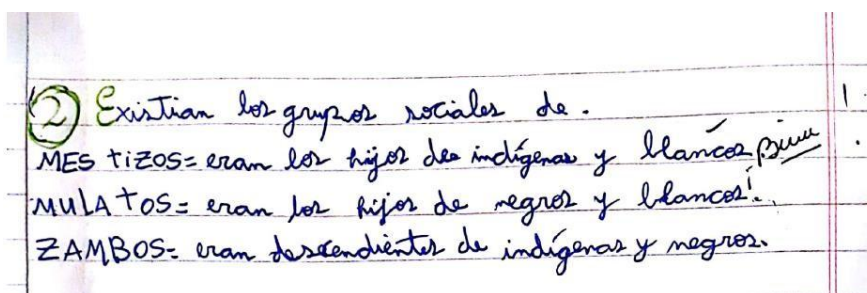 2) Existian los grupos sociales de.
MES tIZOS= eran los hijos de indígenas y blancos Bien
MULATOS= eran los hijos de negros y blancos!.
ZAMBOS= eran descendientes de indígenas y negros.